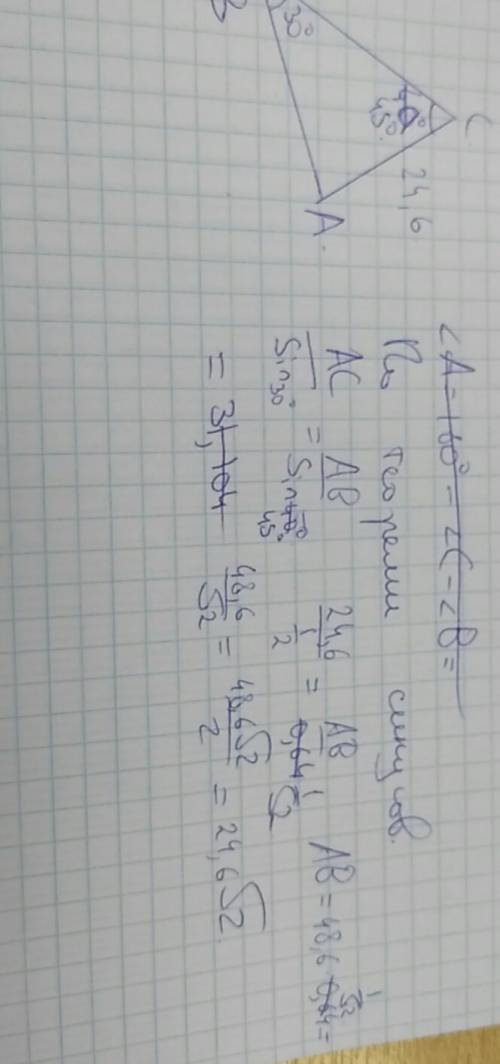 B
30°
C
45°
24,6
A
<A = 180° - <C - <B =
По теореми синусов.
AC/Sin30° = AB/Sin45° 24,6/1/2 = AB/1/√2 AB = 48,6 1/√2 =
= 31,104 48,6/√2 = 48,6√2/2 = 24,6√2